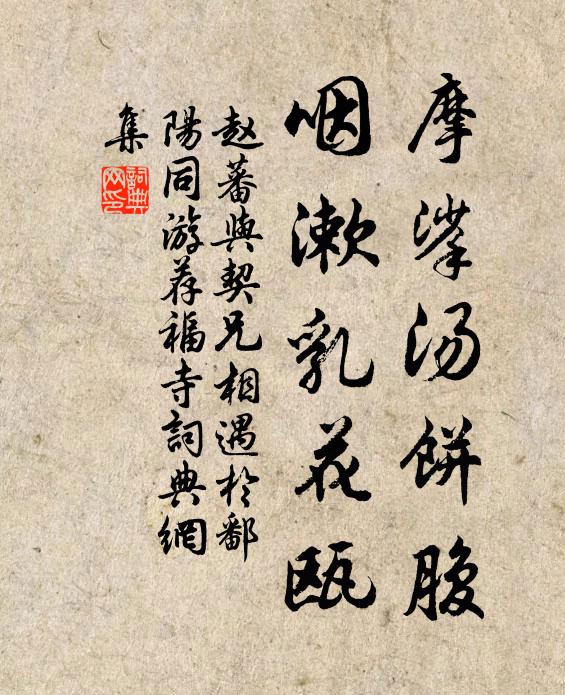 摩挲汤餅腹
咽漱乳花瓯
赵蕃與契兄相遇於鄱
陽同游荐福寺詞典網
集
詞典
网印